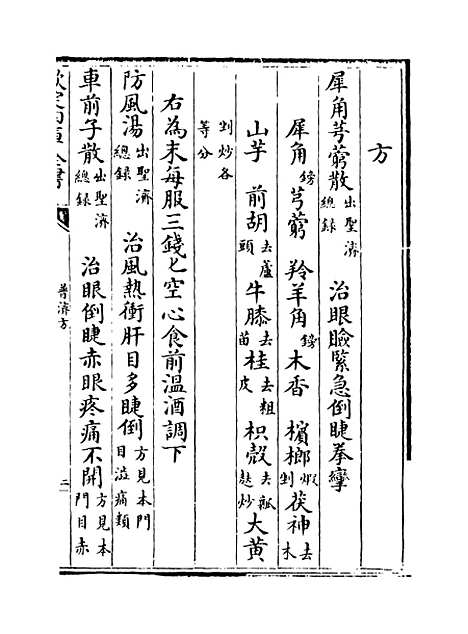 方
犀角芎藭散出聖濟總録　治眼瞼緊急倒睫拳攣
犀角鎊　芎藭　羚羊角鎊　木香　檳榔煨剉　茯神去木
山芋　前胡去蘆頭　牛膝去苗　桂去粗皮　枳殻去瓤麩炒　大黄
剉炒各等分
右為末每服三錢匕空心食前溫酒調下
防風湯出聖濟總録　治風熱衝肝目多睫倒方見本門目澁痛類
車前子散出聖濟總録　治眼倒睫赤眼疼痛不開方見本門目赤
欽定四庫全書
普濟方
二